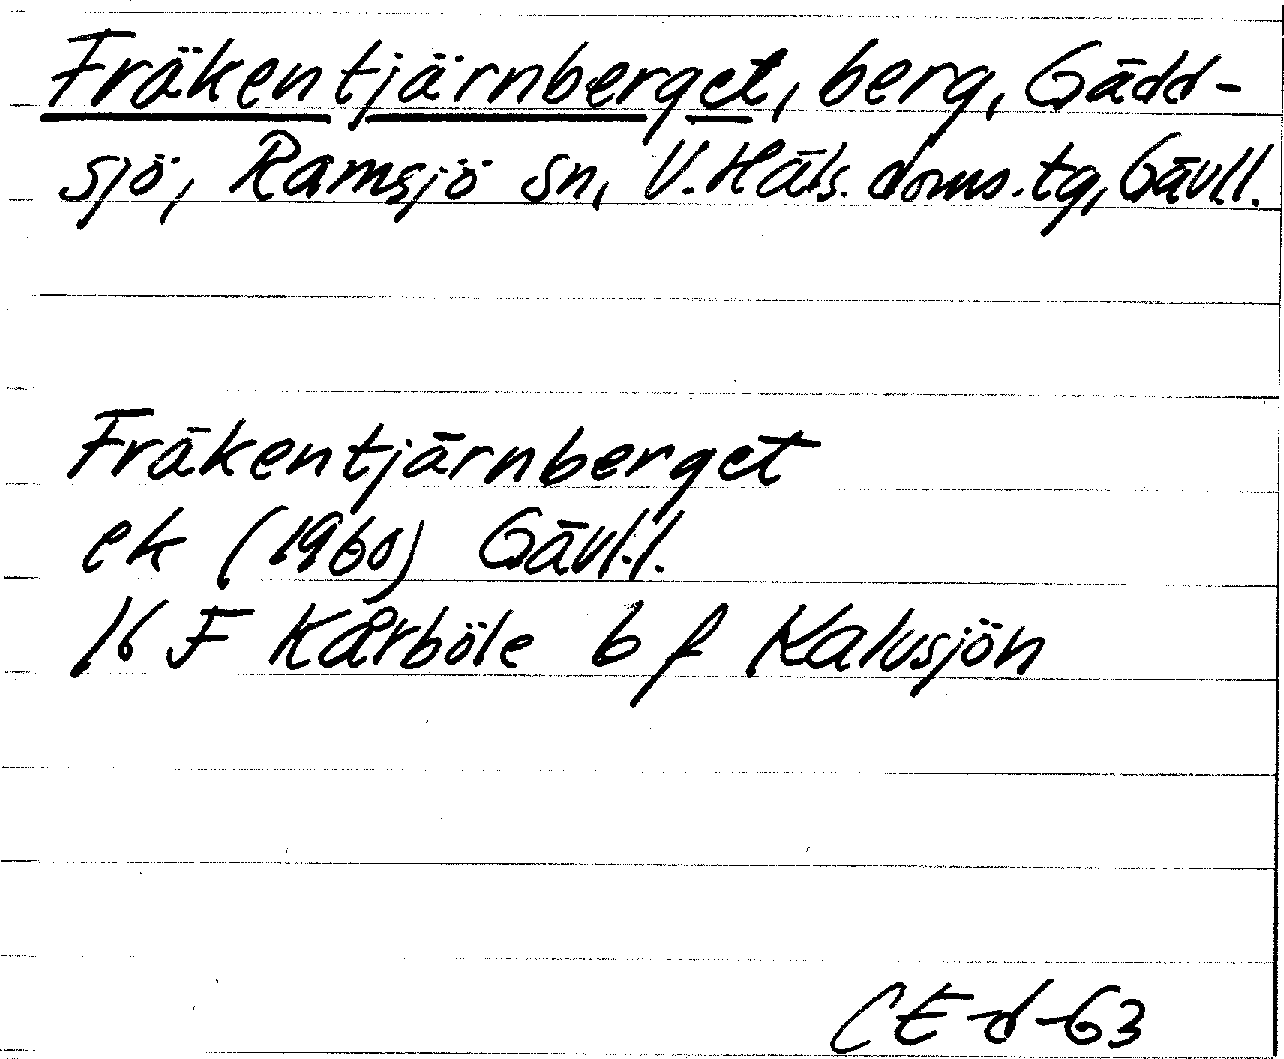 Fräkentjärnberget, berg, Gädd-
sjö, Ramsjö sn, V. Häls. doms. tg, Gävl.l.
Fräkentjärnberget
ek (1960) Gävl.l.
16 F Kårböle b f Kalvsjön
CE-d-63